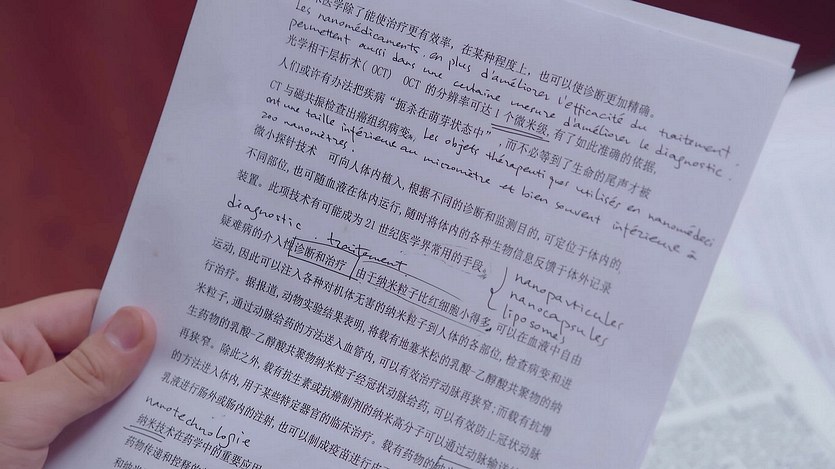 医学除了能使治疗更有效率，在某种程度上，也可以使诊断更加精确。
Les nanomédicaments, en plus d'améliorer l'efficacité du traitement,
permettent aussi dans une certaine mesure d'améliorer le diagnostic.
光学相干层析术（OCT） OCT 的分辨率可达 1 个微米级，有了如此准确的依据，
人们或许有办法把疾病“扼杀在萌芽状态中”，而不必等到了生命的尾声才被
CT 与磁共振检查出癌组织病变。 Les objets thérapeutiques utilisés en nanomédeci
ont une taille inférieure au micromètre et bien souvent inférieure à
200 nanomètres!
微小探针技术 可向人体内植入，根据不同的诊断和监测目的，可定位于体内的
不同部位，也可随血液在体内运行，随时将体内的各种生物信息反馈于体外记录
装置。此项技术有可能成为 21 世纪医学界常用的手段。
diagnostic . traitement.
nanoparticules
nanocapsules
liposomes
疑难病的介入性诊断和治疗 由于纳米粒子比红细胞小得多，可以在血液中自由
运动，因此可以注入各种对机体无害的纳米粒子到人体的各部位，检查病变和进
行治疗。据报道，动物实验结果表明，将载有地塞米松的乳酸-乙醇酸共聚物的纳
米粒子，通过动脉给药的方法送入血管内，可以有效治疗动脉再狭窄；而载有抗增
生药物的乳酸-乙醇酸共聚物纳米粒子经冠状动脉给药，可以有效防止冠状动脉
再狭窄。除此之外，载有抗生素或抗癌制剂的纳米高分子可以通过动脉输送
的方法进入体内，用于某些特定器官的临床治疗。载有药物的纳
乳液进行肠外或肠内的注射，也可以制成疫苗进行
nanotechnologie
纳米技术在药学中的重要应用
药物传递和控释的
和纳